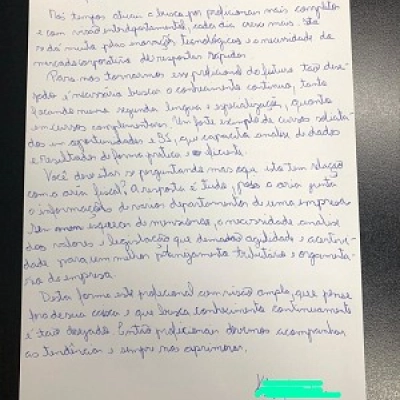 Nos tempos atuais a busca por profissionais mais completos
e com visão interdepartamental, cada dia cresce mais. Isto
se dá muito pelas inovações tecnológicas e a necessidade do
mercado corporativo de respostas rápidas.
Para nos tornarmos esse profissional do futuro tão dese-
jado, é necessário buscar o conhecimento contínuo, tanto
focando numa segunda língua e especialização, quanto
em cursos complementares. Um forte exemplo de cursos solicita-
dos em oportunidades é BI, que capacita analise de dados
e resultados de forma prática e eficiente.
Você deve estar se perguntando mas o que isto tem relação
com a área fiscal? A resposta é tudo, pois a área junta
as informações de vários departamentos de uma empresa
sem esquecer de mencionar, a necessidade analise
dos valores e legislação que demanda agilidade e acertivi-
dade para um melhor planejamento tributário e orçamentá-
rio da empresa.
Desta forma este profissional com visão ampla, que pense
fora de sua caixa e que busca conhecimento continuamente
é tão desejado. Então profissionais devemos acompanhar
as tendências e sempre nos aprimorar.